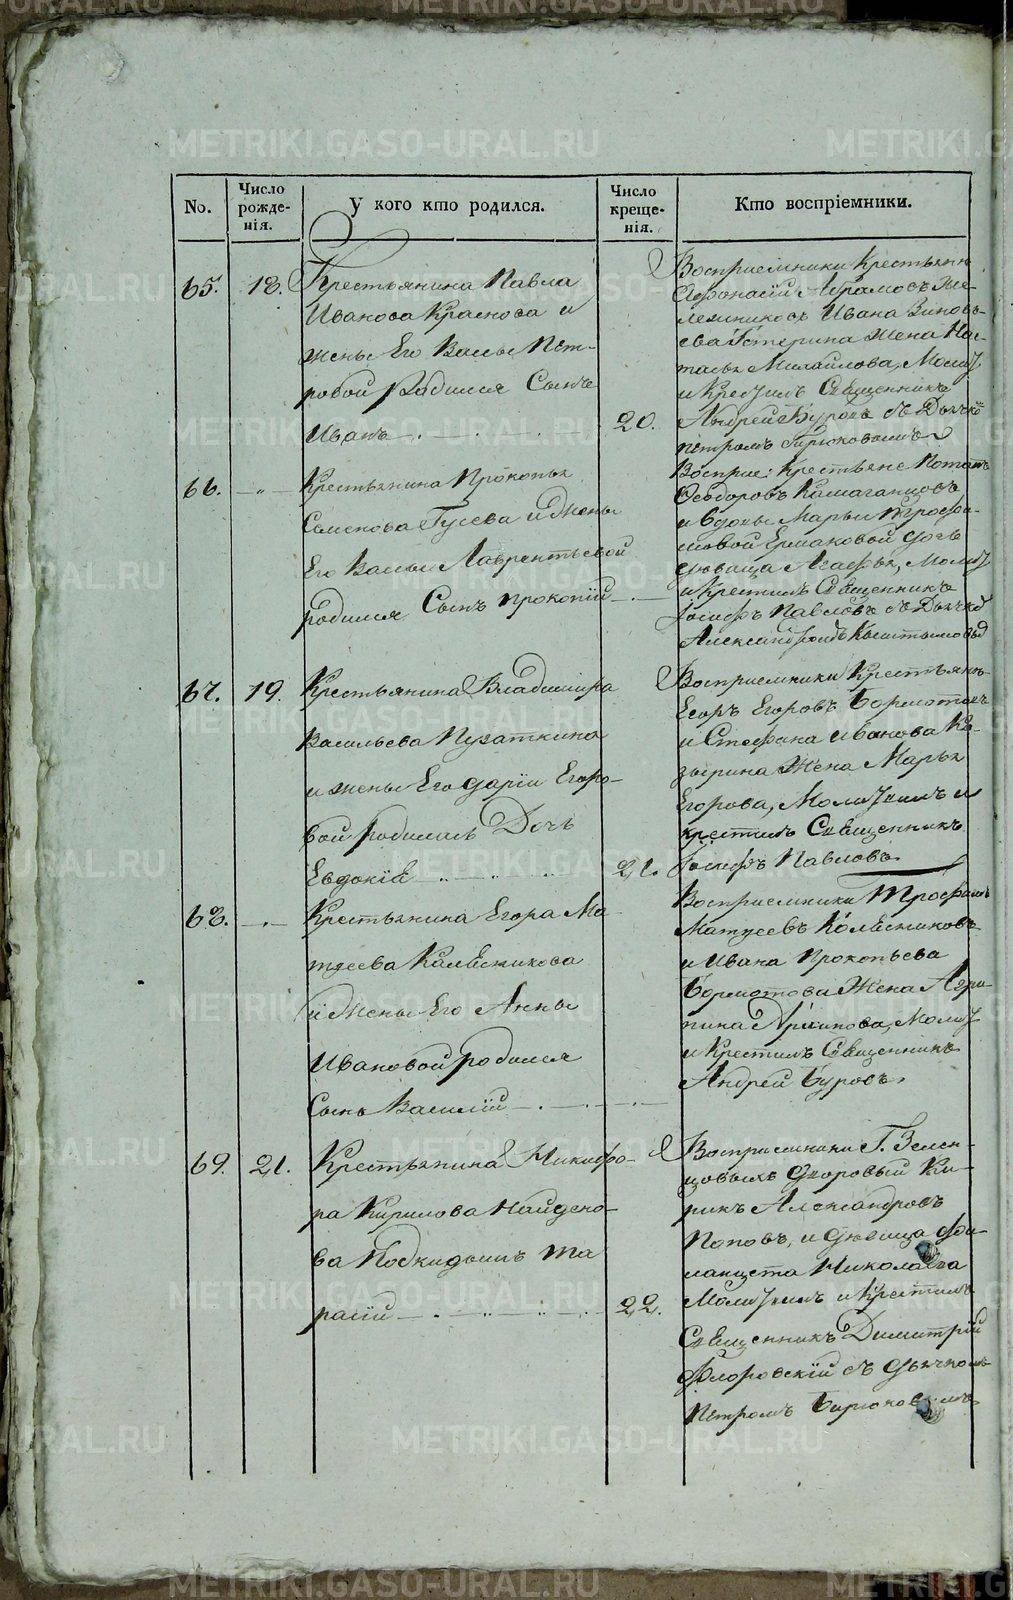 No.
Число рожде- нія.
У кого кто родился.
Число креще- нія.
Кто воспріемники.
65.
18.
Крестьянина Павла
Иванова Краснова и
жены Его Вассы Пет-
ровой родился Сынъ
Иванъ
20.
Воспріемники Крестьянинъ
Афонасій Абрамовъ
Ивана Зиновь-
ева жена Нас-
тасья Михайлова, Молит
и Крестилъ Священникъ
Андрей Буровъ съ Дьячко
петромъ Бирюковымъ
66.
"
Крестьянина Прокопья
Семенова Гусева и Жены
Его Вассы Лаврентьевой
родился Сынъ прокопій
Восприе: Крестьяне Потапъ
Феодоровъ
и вдовы Марьи Трофи-
мовой Ермаковой дочь
девица Агафья, Молит
и Крестилъ Священникъ
Іосифъ Павловъ съ Дьячко
Александромъ
67.
19.
Крестьянина Владимира
Васильева Пузаткина
и жены Его дарій Егоро-
вой родилась Дочь
Евдокій
21.
Воспріемники Крестьянъ
Егоръ Егоровъ Бормотовъ
и Стефана Иванова Ко-
зырина Жена Марья
Егорова, Молитвилъ и
крестилъ Священникъ
Іосифъ Павловъ
68.
Крестьянина Егора Ма-
тдеева Калесникова
и Жены Его Анны
Ивановой родился
Сынъ Василій
Воспріемники Трофимъ
Матдеевъ Колесниковъ
и Ивана Прокопьева
Бормотова Жена Агри-
пина Архипова, Молит
и Крестилъ Священникъ
Андрей Буровъ.
69.
21.
Крестьянина Никифо-
ра Кирилова Найдено-
ва Подкидышъ Та
расій
22.
Воспріемники Г. Зелен-
цовыхъ дворовый Ки-
рикъ Александровъ
Поповъ, и девица фди-
Николаева
Молитвилъ и Крестилъ
Священникъ Димитрій
Флоровскій съ дьячкомъ
петромъ Бирюковымъ
METRIKI.GASO-URAL.RU